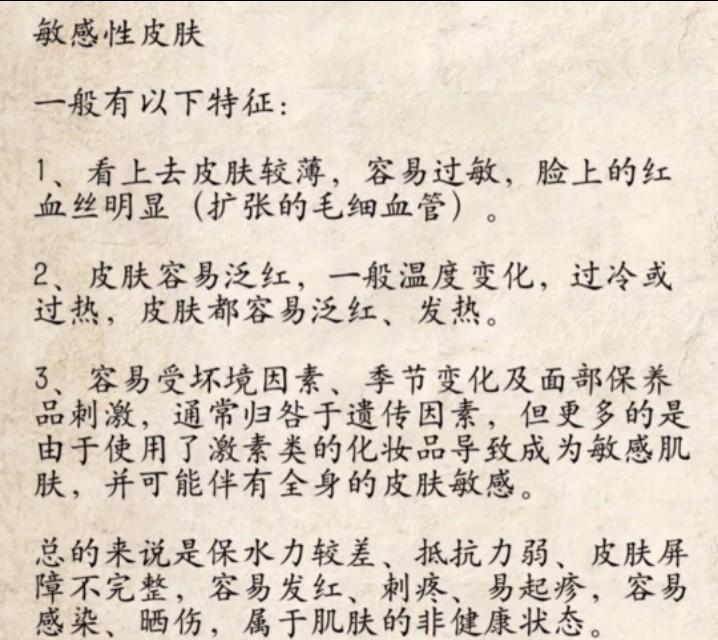 敏感性皮肤
一般有以下特征：
1、看上去皮肤较薄，容易过敏，脸上的红
血丝明显（扩张的毛细血管）。
2、皮肤容易泛红，一般温度变化，过冷或
过热，皮肤都容易泛红、发热。
3、容易受坏境因素、季节变化及面部保养
品刺激，通常归咎于遗传因素，但更多的是
由于使用了激素类的化妆品导致成为敏感肌
肤，并可能伴有全身的皮肤敏感。
总的来说是保水力较差、抵抗力弱、皮肤屏
障不完整，容易发红、刺疼、易起疹，容易
感染、晒伤，属于肌肤的非健康状态。